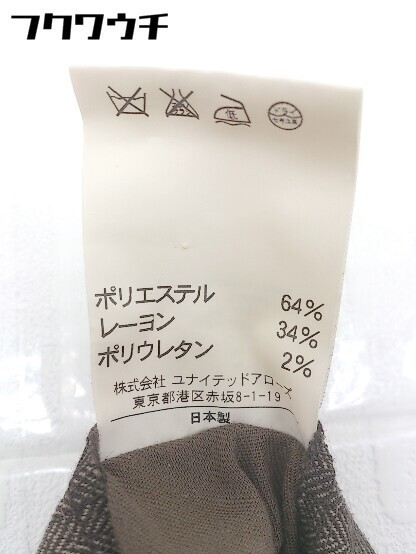 フクワウチ
低
ドライ
セキユ系
ポリエステル 64%
レーヨン 34%
ポリウレタン 2%
株式会社 ユナイテッドアローズ
東京都港区赤坂8-1-19
日本製